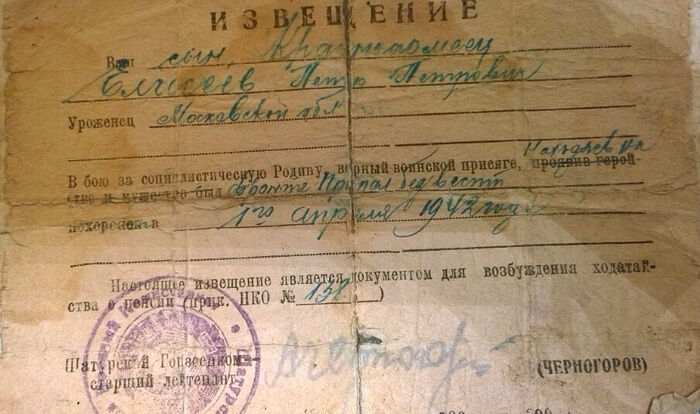 ИЗВЕЩЕНИЕ
Ваш сын, Красноармеец
Елисеев Петр Петрович
Уроженец Московской обл
Находясь на
В бою за социалистическую Родину, верный воинской присяге, проявив герой-
ство и мужество был фронте Пропал без вести
похоронен в 1го апреля 1942 года
Настоящее извещение является документом для возбуждения ходатай-
ства о пенсии (прик. НКО № 138 )
Шатурский Горвоенком—
старший лейтенант
(ЧЕРНОГОРОВ)